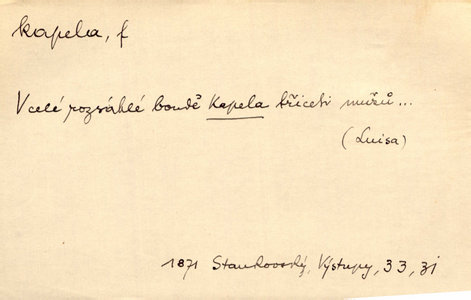 kapela, f
V celé rozsáhlé boudě kapela třiceti mužů...
(Luisa)
1871 Stankovský, Výstupy, 33, zj